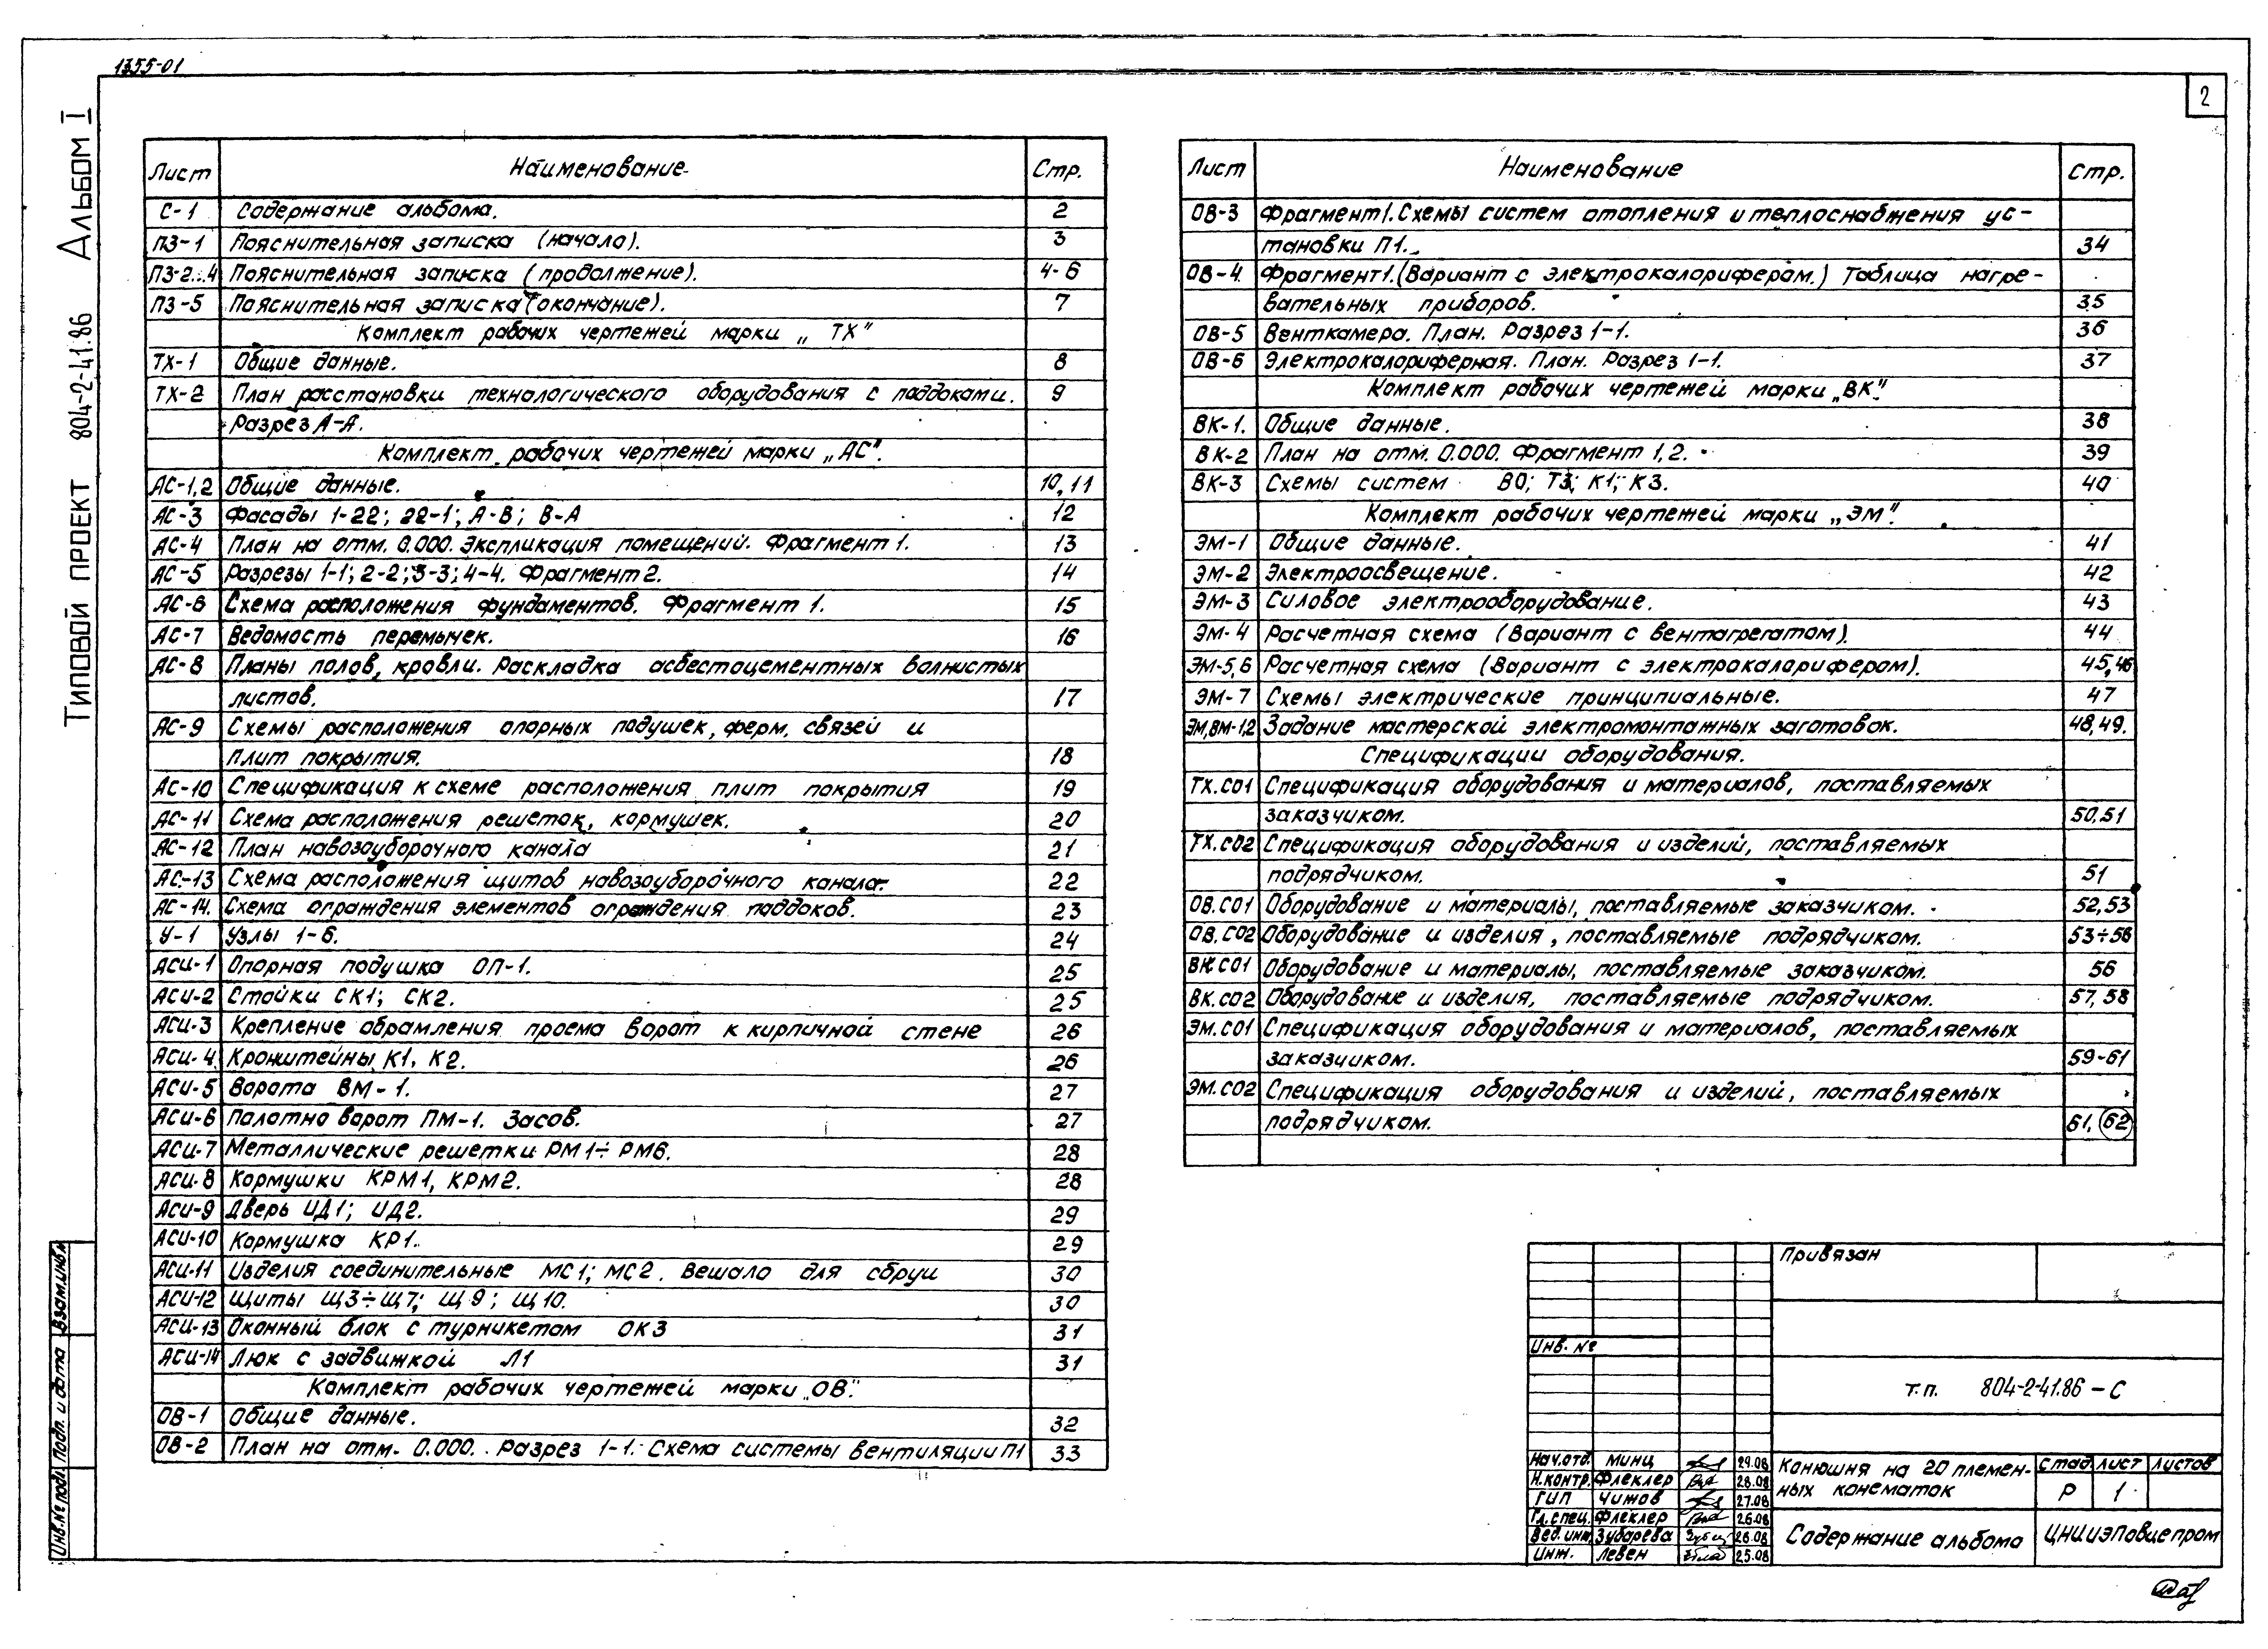 1355-01
2
Типовой проект 804-2-41.86 Альбом I
Лист Наименование Стр.
С-1 Содержание альбома. 2
ПЗ-1 Пояснительная записка (начало). 3
ПЗ-2..4 Пояснительная записка (продолжение). 4-6
ПЗ-5 Пояснительная записка (окончание). 7
Комплект рабочих чертежей марки „ТХ"
ТХ-1 Общие данные. 8
ТХ-2 План расстановки технологического оборудования с паддоками. 9
Разрез А-А.
Комплект рабочих чертежей марки „АС".
АС-1,2 Общие данные. 10,11
АС-3 Фасады 1-22; 22-1; А-В; В-А 12
АС-4 План на отм. 0.000. Экспликация помещений. Фрагмент 1. 13
АС-5 Разрезы 1-1; 2-2; 3-3; 4-4. Фрагмент 2. 14
АС-6 Схема расположения фундаментов. Фрагмент 1. 15
АС-7 Ведомость перемычек. 16
АС-8 Планы полов, кровли. Раскладка асбестоцементных волнистых
листов. 17
АС-9 Схемы расположения опорных подушек, ферм, связей и
плит покрытия. 18
АС-10 Спецификация к схеме расположения плит покрытия 19
АС-11 Схема расположения решеток, кормушек. 20
АС-12 План навозоуборочного канала 21
АС-13 Схема расположения щитов навозоуборочного канала. 22
АС-14. Схема ограждения элементов ограждения паддоков. 23
У-1 Узлы 1-6. 24
АСИ-1 Опорная подушка ОП-1. 25
АСИ-2 Стойки СК1; СК2. 25
АСИ-3 Крепление обрамления проема ворот к кирпичной стене 26
АСИ-4 Кронштейны К1, К2. 26
АСИ-5 Ворота ВМ-1. 27
АСИ-6 Полотно ворот ПМ-1. Засов. 27
АСИ-7 Металлические решетки РМ1÷РМ6. 28
АСИ-8 Кормушки КРМ1, КРМ2. 28
АСИ-9 Дверь ИД1; ИД2. 29
АСИ-10 Кормушка КР1. 29
АСИ-11 Изделия соединительные МС1; МС2. Вешало для сбруи 30
АСИ-12 Щиты Щ3÷Щ7; Щ9; Щ10. 30
АСИ-13 Оконный блок с турникетом ОК3 31
АСИ-14 Люк с задвижкой Л1 31
Комплект рабочих чертежей марки „ОВ".
ОВ-1 Общие данные. 32
ОВ-2 План на отм. 0.000. Разрез 1-1. Схема системы вентиляции П1 33
Лист Наименование Стр.
ОВ-3 Фрагмент 1. Схемы систем отопления и теплоснабжения ус-
тановки П1. 34
ОВ-4. Фрагмент 1. (Вариант с электрокалорифером.) Таблица нагре-
вательных приборов. 35
ОВ-5 Венткамера. План. Разрез 1-1. 36
ОВ-6 Электрокалориферная. План. Разрез 1-1. 37
Комплект рабочих чертежей марки „ВК".
ВК-1. Общие данные. 38
ВК-2 План на отм. 0.000. Фрагмент 1,2. 39
ВК-3 Схемы систем В0; Т3; К1; К3. 40
Комплект рабочих чертежей марки „ЭМ".
ЭМ-1 Общие данные. 41
ЭМ-2 Электроосвещение. 42
ЭМ-3 Силовое электрооборудование. 43
ЭМ-4 Расчетная схема (Вариант с вентагрегатом). 44
ЭМ-5,6 Расчетная схема (Вариант с электрокалорифером). 45,46
ЭМ-7 Схемы электрические принципиальные. 47
ЭМ,ВМ-1,2 Задание мастерской электромонтажных заготовок. 48,49.
Спецификации оборудования.
ТХ.СО1 Спецификация оборудования и материалов, поставляемых
заказчиком. 50,51
ТХ.СО2 Спецификация оборудования и изделий, поставляемых
подрядчиком. 51
ОВ.СО1 Оборудование и материалы, поставляемые заказчиком. 52,53
ОВ.СО2 Оборудование и изделия, поставляемые подрядчиком. 53÷56
ВК.СО1 Оборудование и материалы, поставляемые заказчиком. 56
ВК.СО2 Оборудование и изделия, поставляемые подрядчиком. 57,58
ЭМ.СО1 Спецификация оборудования и материалов, поставляемых
заказчиком. 59-61
ЭМ.СО2 Спецификация оборудования и изделий, поставляемых
подрядчиком. 61, 62
Привязан
Инв. №
т.п. 804-2-41.86 - С
Нач.отд. Минц 29.08
Н.контр. Флеклер 28.08
ГИП Чижов 27.08
Гл.спец. Флеклер 26.08
Вед.инж Зубарева 26.08
Инж. Левен 25.08
Конюшня на 20 племен-
ных конематок
Стад. Лист Листов
Р 1
Содержание альбома
ЦНИИЭПовцепром
Инв.№ подл. Подп. и дата Взам.инв.№